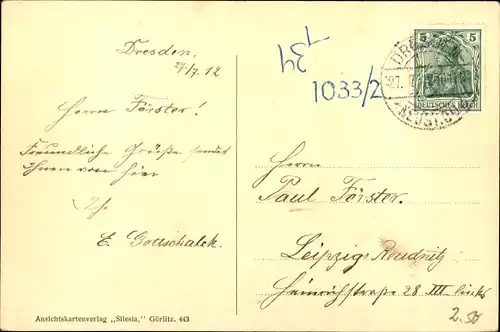 Dresden,
27/7. 12
Herrn Förster!
Freundliche Grüße sendet
Ihnen von hier
E. Gottschalck.
Ansichtskartenverlag „Silesia,“ Görlitz. 443
34
1033/2
5 5
DEUTSCHES REICH
DRESDEN
27. 7. 12
NEUST.
Herrn
Paul Förster.
Leipzig Reudnitz
Heinrichstraße 28 III links
2.50